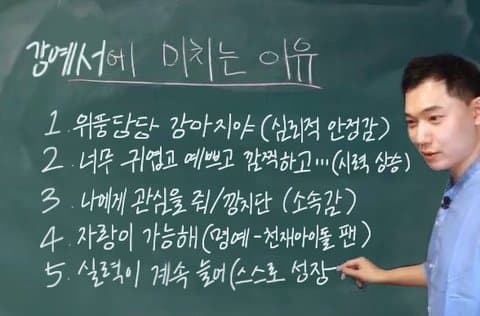 강예서에 미치는 이유
1. 위풍당당 강아지야 (심리적 안정감)
2. 너무 귀엽고 예쁘고 깜찍하고… (시력 상승)
3. 나에게 관심을 줘/깡치단 (소속감)
4. 자랑이 가능해 (명예-천재아이돌 팬)
5. 실력이 계속 늘어 (스스로 성장